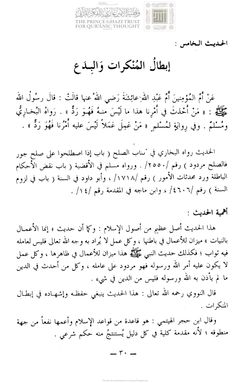 THE PRINCE GHAZI TRUST
FOR QUR'ANIC THOUGHT
الحديث الخامس :
إبطال المُنْكرات وَالبِدَع
عَنْ أُمِّ المُؤْمِنينَ أُمِّ عَبْدِ اللهِ عائِشَةَ رَضيَ اللهُ عنها قالَتْ : قالَ رَسُولُ اللهِ
ﷺ : « مَنْ أَحْدَثَ في أَمْرِنا هذا ما لَيْسَ مِنهُ فَهُوَ رَدٌّ » . رَواهُ البُخارِيُّ
ومُسْلِمٌ . وفي رِوايَةٍ لمُسْلمٍ « مَنْ عَمِلَ عَمَلاً لَيْسَ عليهِ أَمْرُنا فَهُوَ رَدٌّ » .
الحديث رواه البخاري في كتاب الصلح ( باب إذا اصطلحوا على صلح جور
فالصلح مردود ) رقم /٢٥٥٠/ . ورواه مسلم في الأقضية ( باب نقض الأحكام
الباطلة ورد محدثات الأمور ) رقم /١٧١٨/ ، وأبو داود في السنة ( باب في لزوم
السنة ) رقم /٤٦٠٦/ ، وابن ماجه في المقدمة رقم /١٤/ .
أهمية الحديث :
هذا الحديث أصل عظيم من أصول الإسلام : وكما أن حديث « إنما الأعمال
بالنيات » ميزان للأعمال في باطنها ، وكل عمل لا يُراد به وجه الله تعالى فليس لعامله
فيه ثواب ؛ فكذلك حديث النبي ﷺ هذا ميزان للأعمال في ظاهرها ، وكل عمل
لا يكون عليه أمر الله ورسوله فهو مردود على عامله ، وكل من أحدث في الدين
ما لم يأذن به الله ورسوله فليس من الدين في شيء .
قال النووي رحمه الله تعالى : هذا الحديث ينبغي حفظه وإشهاده في إبطال
المنكرات .
وقال ابن حجر الهيتمي : هو قاعدة من قواعد الإسلام وأعمها نفعاً من جهة
منطوقه ؛ لأنه مقدمة كلية في كل دليل يُستنتج منه حكم شرعي .
— ٣٠ —